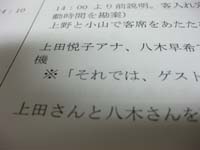 14:10
14:00 より前説明。客入れ完
動時間を勘案）
上野と小山で客席をあたため
上田悦子アナ、八木早希ア
機
※「それでは、ゲスト
上田さんと八木さんを